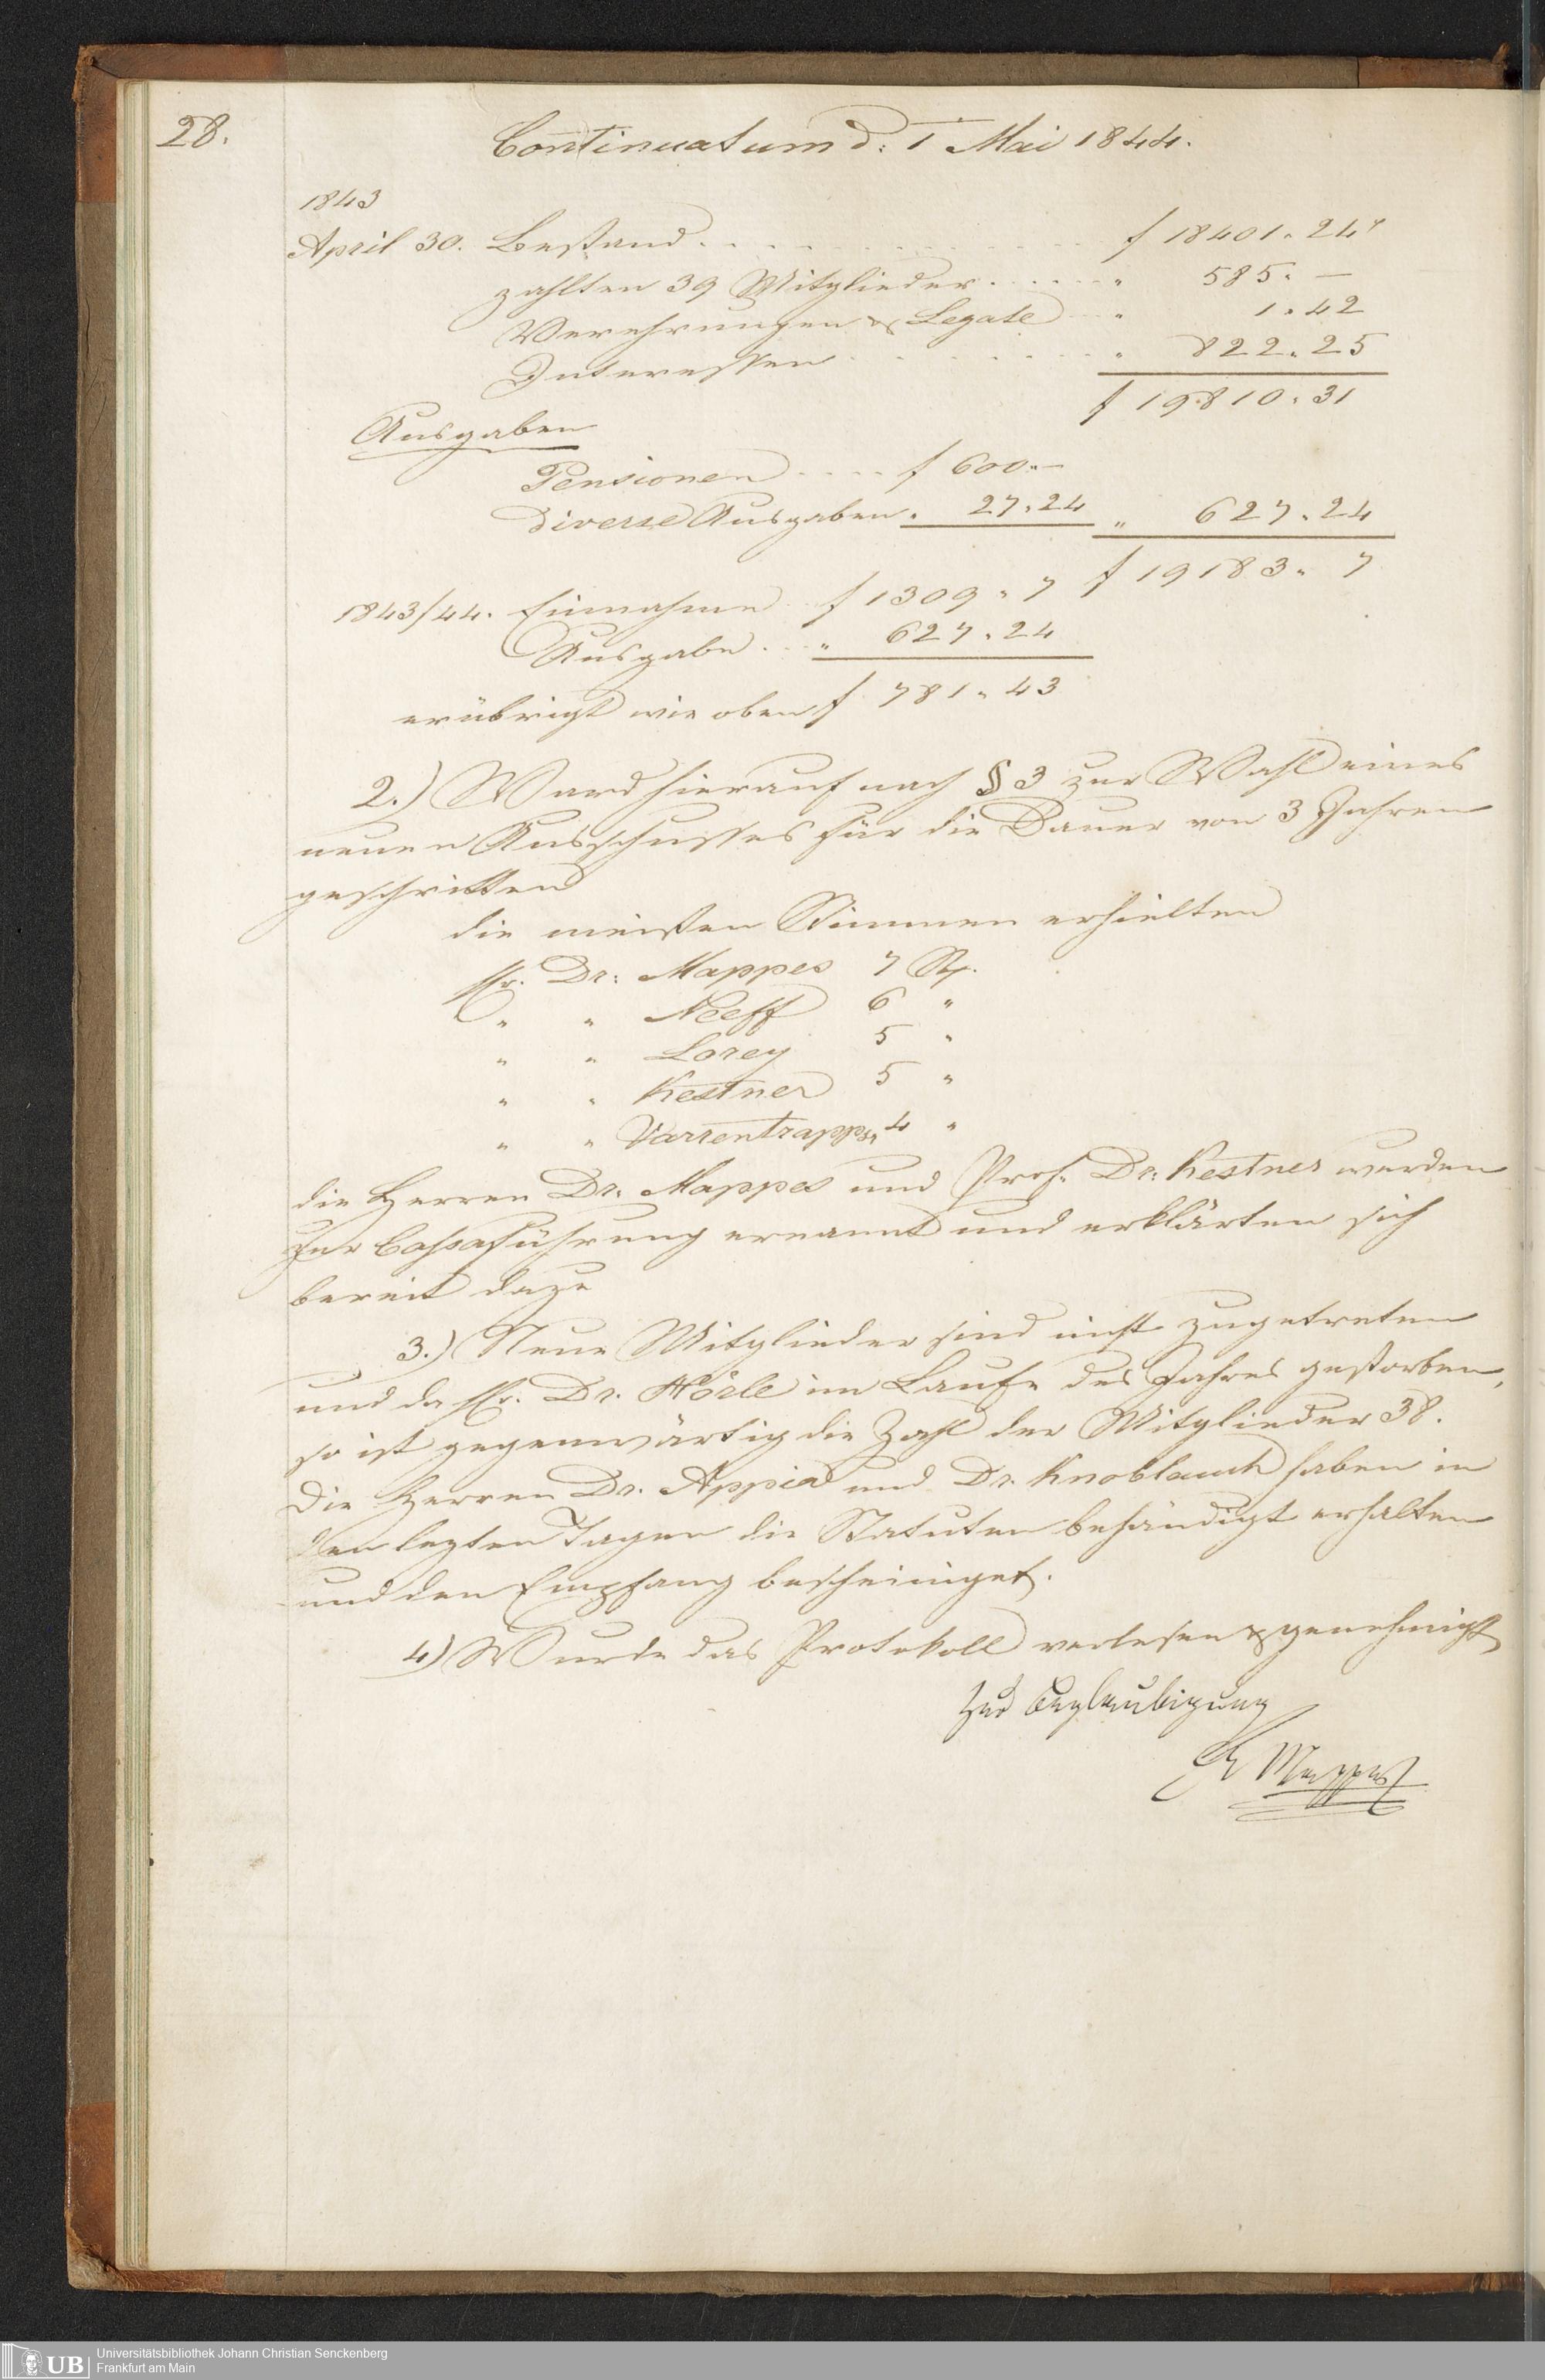 28.
Continuatum d: 1 Mai 1844.
1843
April 30. Bestand . . . . f 18401. 24
zahlten 39 Mitglieder . . . . " 585. —
Verehrungen & Legate . . " 1. 42
Interessen . . . . " 822. 25
f 19810. 31
Ausgaben
Pensionen . . . . f 600. —
Diverse Ausgaben . 27. 24 " 627. 24
f 19183. 7
1843/44. Einnahme . . f 1309. 7
Ausgabe . . . " 627. 24
erübrigt wie oben f 781. 43
2.) Ward hierauf nach § 3 zur Wahl eines
neuen Ausschusses für die Dauer von 3 Jahren
geschritten
die meisten Stimmen erhielten
Hr. Dr: Mappes 7 St.
" " Neeff 6 "
" " Lorey 5 "
" " Kestner 5 "
" " Varrentrapp sr. 4 "
die Herren Dr. Mappes und Prof. Dr: Kestner wurden
zur Cassaführung ernannt und erklärten sich
bereit dazu
3.) Neue Mitglieder sind nicht zugetreten
und da Hr. Dr. Hörle im Laufe des Jahres gestorben,
so ist gegenwärtig die Zahl der Mitglieder 38.
Die Herren Dr. Appia und Dr. Knoblauch haben in
den lezten Tagen die Statuten behändigt erhalten
und den Empfang bescheiniget.
4) Wurde das Protokoll verlesen & genehmigt
Zur Beglaubigung
Dr Mappes
UB Universitätsbibliothek Johann Christian Senckenberg
Frankfurt am Main